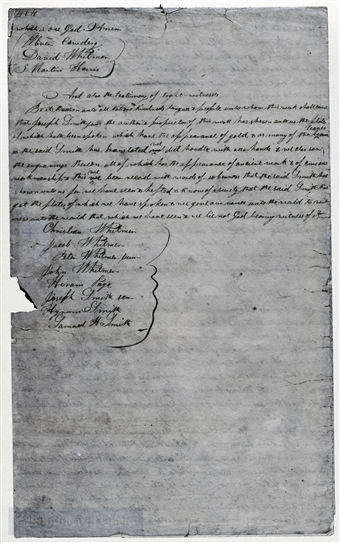 which is one God. Amen
Oliver Cowdery
David Whitmer
Martin Harris
And also the testimony of eight witnesses
Be it known unto all nations kindreds tongues & people unto whom this work shall come
that Joseph Smith jun the author & proprietor of this work has shewn unto us the plates
of which hath been spoken which have the appearance of gold & as many of the
leaves
as the said Smith has translated we did handle with our hands & we also saw
the engravings thereon all of which has the appearance of ancient work & of curious
workmanship & this we bear record with words of soberness that the said Smith has
shewn unto us for we have seen & hefted & know of a surety that the said Smith has
got the plates of which we have spoken & we give our names unto the world to
witness unto the world that which we have seen & we lie not God bearing witness of it
Christian Whitmer
Jacob Whitmer
Peter Whitmer jun
John Whitmer
Hiram Page
Joseph Smith sen
Hyrum Smith
Samuel H Smith